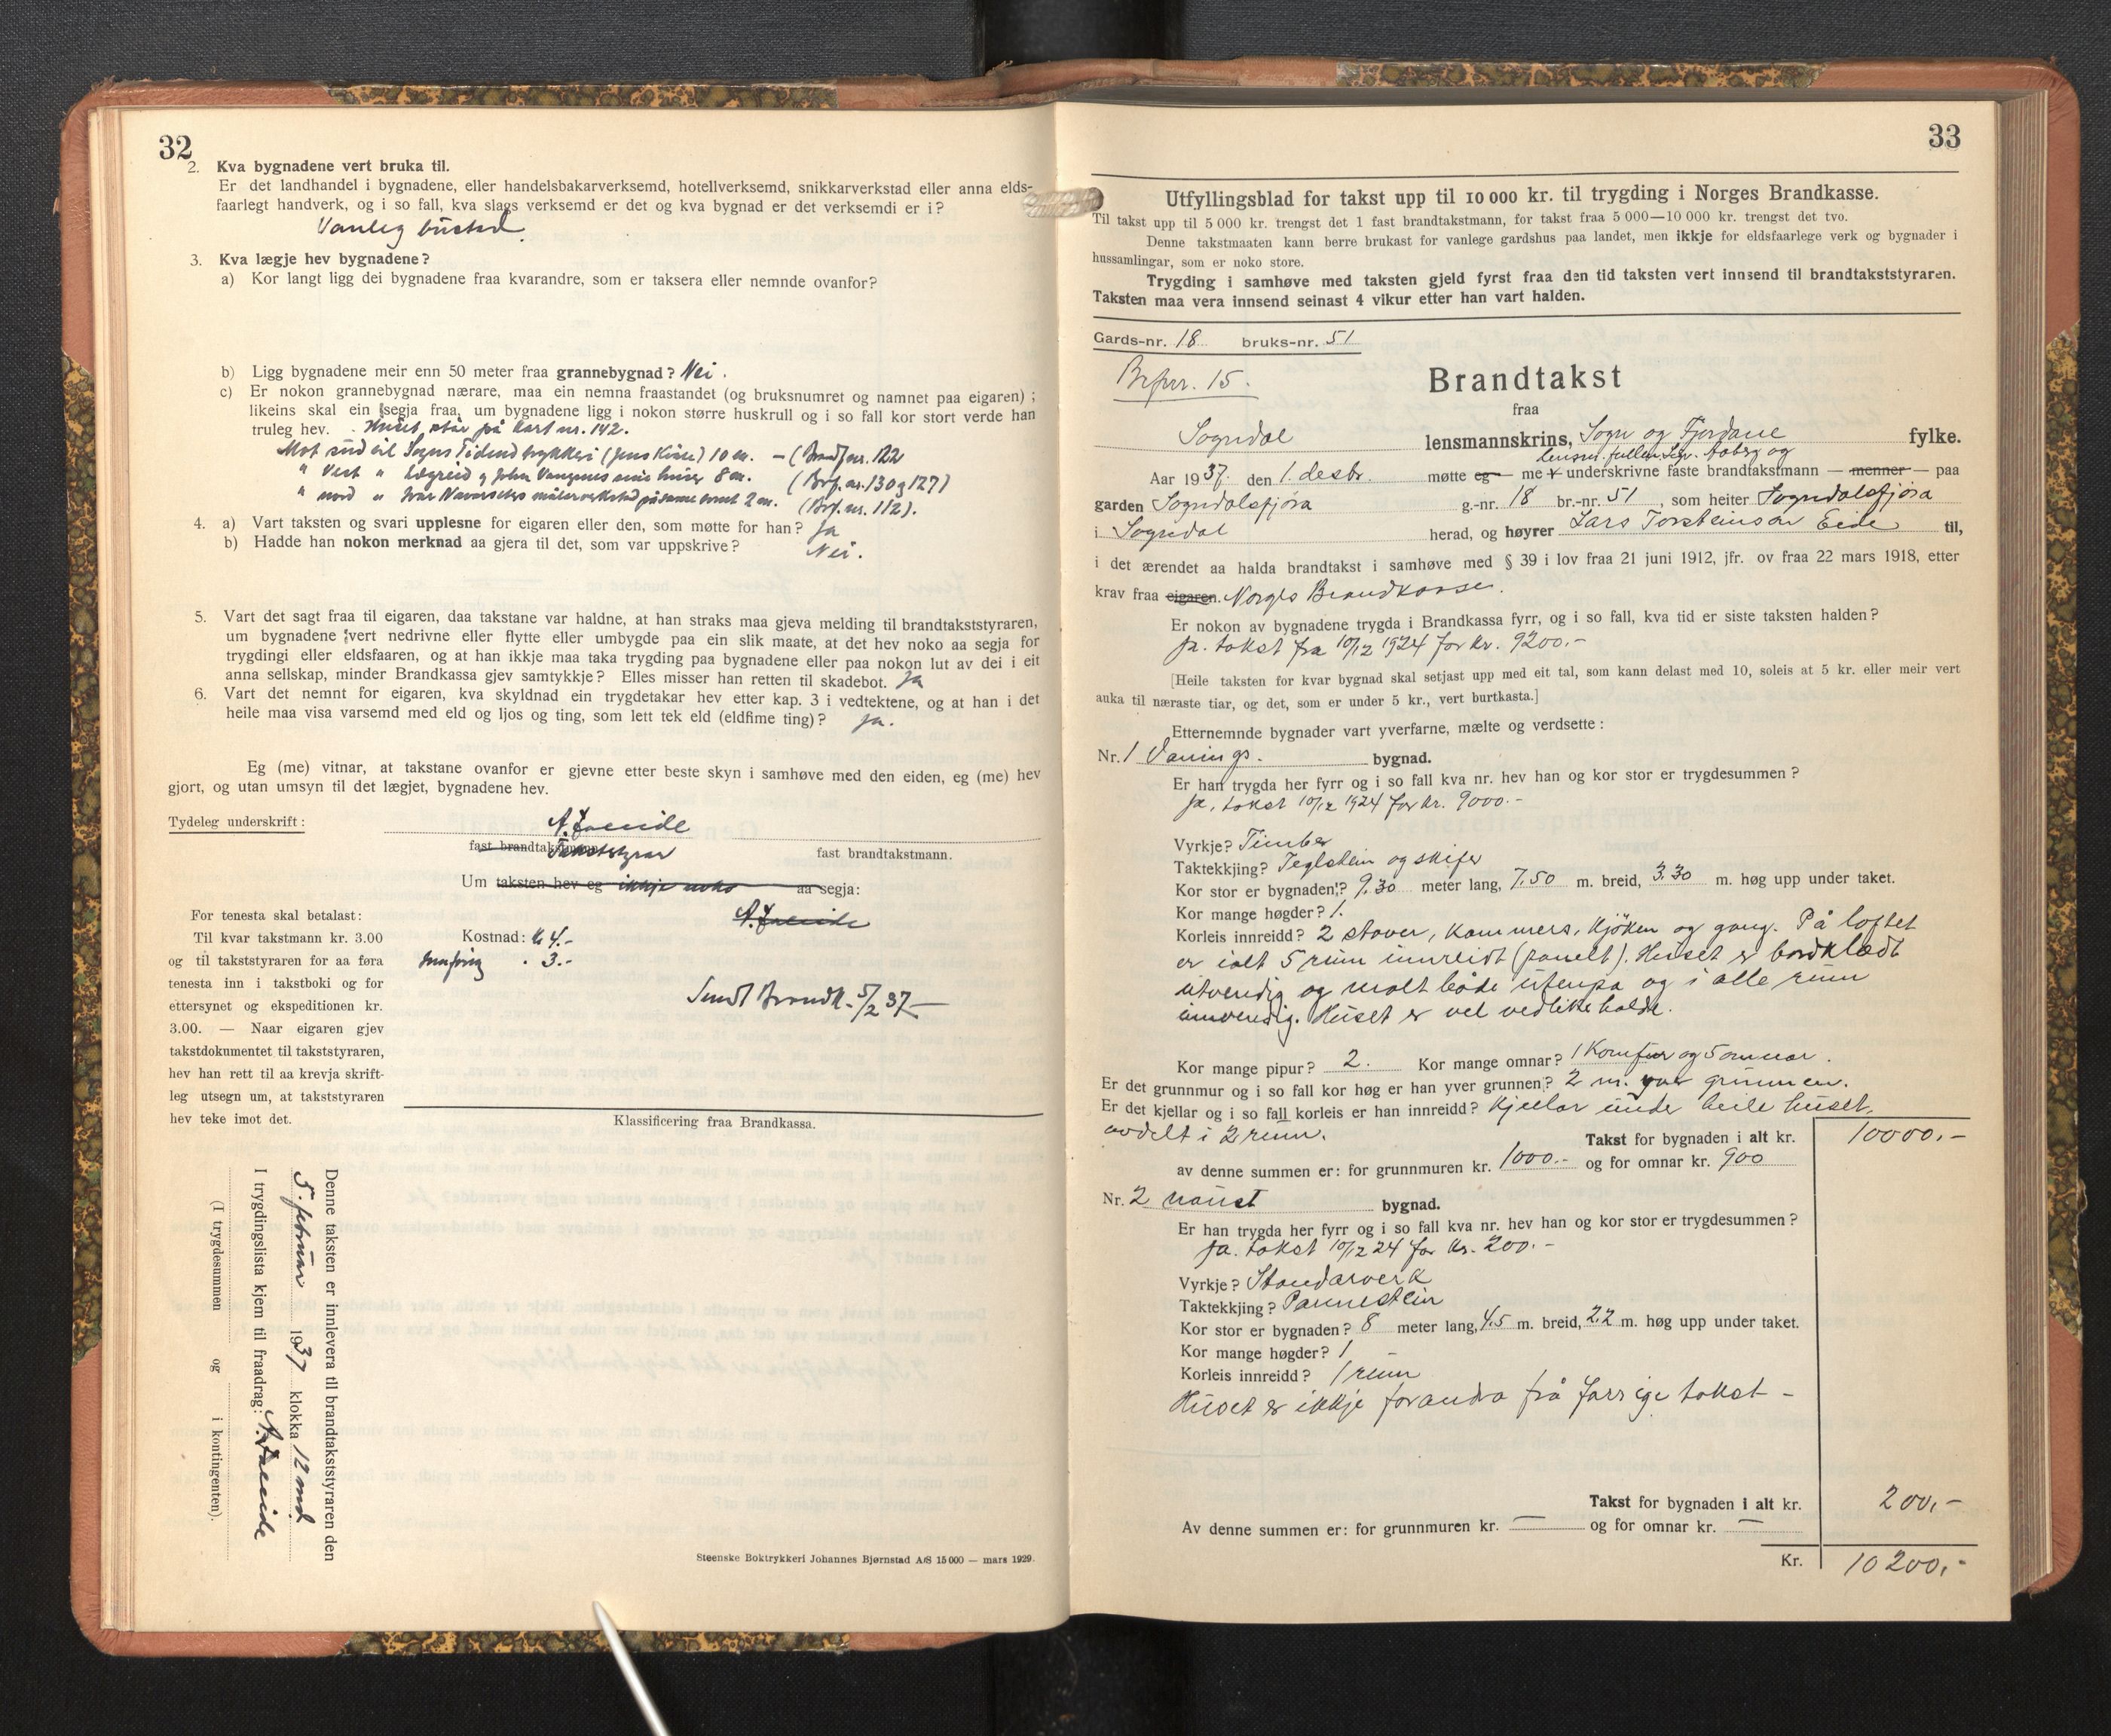 32
2. Kva bygnadene vert bruka til.
Er det landhandel i bygnadene, eller handelsbakarverksemd, hotellverksemd, snikkarverkstad eller anna elds-
faarlegt handverk, og i so fall, kva slags verksemd er det og kva bygnad er det verksemdi er i?
Vanleg bustad.
3. Kva lægje hev bygnadene?
a) Kor langt ligg dei bygnadene fraa kvarandre, som er taksera eller nemnde ovanfor?
b) Ligg bygnadene meir enn 50 meter fraa grannebygnad? Nei.
c) Er nokon grannebygnad nærare, maa ein nemna fraastandet (og bruksnumret og namnet paa eigaren) ;
likeins skal ein segja fraa, um bygnadene ligg i nokon større huskrull og i so fall kor stort verde han
truleg hev. Huset står på kart nr. 142.
Mot sud til Sogns Tidend trykkeri (Jens Kvåle) 10 m. — (Brandf nr. 122
" Vest " Lægreid og John Vangsnes sine huser 8 m. (Brf. nr. 130 og 127)
" nord " Ivar Navarsetes målarverkstad på same tomt 2 m. (Brf. nr. 112).
4. a) Vart taksten og svari upplesne for eigaren eller den, som møtte for han? Ja
b) Hadde han nokon merknad aa gjera til det, som var uppskrive? Nei.
5. Vart det sagt fraa til eigaren, daa takstane var haldne, at han straks maa gjeva melding til brandtakststyraren,
um bygnadene vert nedrivne eller flytte eller umbygde paa ein slik maate, at det hev noko aa segja for
trygdingi eller eldsfaaren, og at han ikkje maa taka trygding paa bygnadene eller paa nokon lut av dei i eit
anna sellskap, minder Brandkassa gjev samtykkje? Elles misser han retten til skadebot. Ja
6. Vart det nemnt for eigaren, kva skyldnad ein trygdetakar hev etter kap. 3 i vedtektene, og at han i det
heile maa visa varsemd med eld og ljos og ting, som lett tek eld (eldfime ting)? Ja.
Eg (me) vitnar, at takstane ovanfor er gjevne etter beste skyn i samhøve med den eiden, eg (me) hev
gjort, og utan umsyn til det lægjet, bygnadene hev.
Tydeleg underskrift:
fast brandtakstmann. Takststyrar
fast brandtakstmann.
Um taksten hev eg ikkje noko aa segja:
For tenesta skal betalast:
Til kvar takstmann kr. 3.00
og til takststyraren for aa føra
tenesta inn i takstboki og for
ettersynet og ekspeditionen kr.
3.00. — Naar eigaren gjev
takstdokumentet til takststyraren,
hev han rett til aa krevja skrift-
leg utsegn um, at takststyraren
hev teke imot det.
Kostnad: kr 4.-
Innføring . 3.-
Sendt Brandk. 5/2 37 —
Klassificering fraa Brandkassa.
Denne taksten er innlevera til brandtakststyraren den
5. februar 1937 klokka 12 md.
I trygdingslista kjem til fraadrag:
(I trygdesummen og i kontingenten).
Steenske Boktrykkeri Johannes Bjørnstad A/S 15 000 — mars 1929.
33
Utfyllingsblad for takst upp til 10 000 kr. til trygding i Norges Brandkasse.
Til takst upp til 5 000 kr. trengst det 1 fast brandtakstmann, for takst fraa 5 000—10 000 kr. trengst det tvo.
Denne takstmaaten kann berre brukast for vanlege gardshus paa landet, men ikkje for eldsfaarlege verk og bygnader i
hussamlingar, som er noko store.
Trygding i samhøve med taksten gjeld fyrst fraa den tid taksten vert innsend til brandtakststyraren.
Taksten maa vera innsend seinast 4 vikur etter han vart halden.
Gards-nr. 18 bruks-nr. 51
Brfnr. 15.
Brandtakst
fraa
Sogndal lensmannskrins, Sogn og Fjordane fylke.
lensm. fullm. Aaberg og
Aar 1937. den 1. desbr. møtte eg — me + underskrivne faste brandtakstmann — menner — paa
garden Sogndalsfjøra g.-nr. 18 br.-nr. 51, som heiter Sogndalsfjøra
i Sogndal herad, og høyrer Lars Torsteinson Eide til,
i det ærendet aa halda brandtakst i samhøve med § 39 i lov fraa 21 juni 1912, jfr. ov fraa 22 mars 1918, etter
krav fraa eigaren. Norges Brandkasse.
Er nokon av bygnadene trygda i Brandkassa fyrr, og i so fall, kva tid er siste taksten halden?
Ja. takst fra 10/12 1924 for kr. 9200.-
[Heile taksten for kvar bygnad skal setjast upp med eit tal, som kann delast med 10, soleis at 5 kr. eller meir vert
auka til næraste tiar, og det, som er under 5 kr., vert burtkasta.]
Etternemnde bygnader vart yverfarne, mælte og verdsette :
Nr. 1 Vaanings. bygnad.
Er han trygda her fyrr og i so fall kva nr. hev han og kor stor er trygdesummen ?
Ja, takst 10/12 1924 for kr. 9000.-
Vyrkje? Timber
Taktekkjing? Teglstein og skifer
Kor stor er bygnaden? 9.30 meter lang, 7.50 m. breid, 3.30 m. høg upp under taket.
Kor mange høgder? 1.
Korleis innreidd? 2 stover, kammers, kjøken og gang. På loftet
er ialt 5 rum innreidt (panelt). Huset er bordklædt
utvendig og malt både utenpa og i alle rum
innvendig. Huset er vel vedlikeholdt.
Kor mange pipur? 2. Kor mange omnar? 1 Komfur og 5 omnar.
Er det grunnmur og i so fall kor høg er han yver grunnen? 2 m. yver grunnen.
Er det kjellar og i so fall korleis er han innreidd? Kjellar under heile huset,
avdelt i 2 rum.
Takst for bygnaden i alt kr. 10000.-
av denne summen er: for grunnmuren kr. 1000.- og for omnar kr. 900
Nr. 2 naust bygnad.
Er han trygda her fyrr og i so fall kva nr. hev han og kor stor er trygdesummen ?
Ja. takst 10/12 24 for kr. 200.-
Vyrkje? Standarverk
Taktekkjing? Pannestein
Kor stor er bygnaden? 8 meter lang, 4.5 m. breid, 2.2 m. høg upp under taket.
Kor mange høgder? 1
Korleis innreidd? 1 rum
Huset er ikkje forandra frå forrige takst -
Takst for bygnaden i alt kr. 200,-
Av denne summen er: for grunnmuren kr. — og for omnar kr. —
Kr. 10 200,-